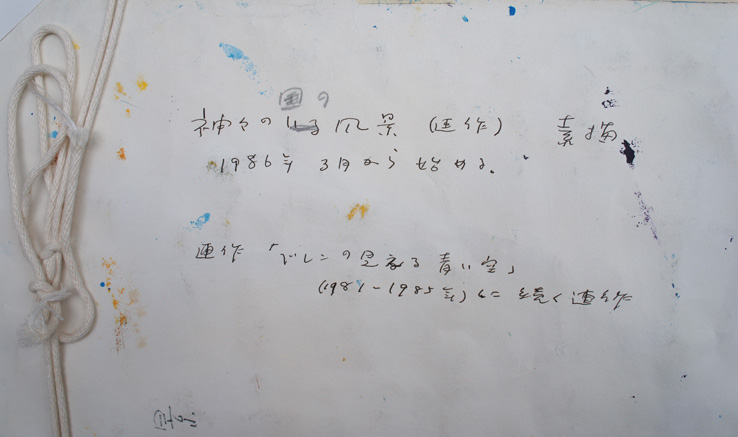 国の
神々のいる風景 (連作) 素描
1986年 3月から 始める。
連作「ドレニの見える青い空」
(1981-1985年) に 続く連作